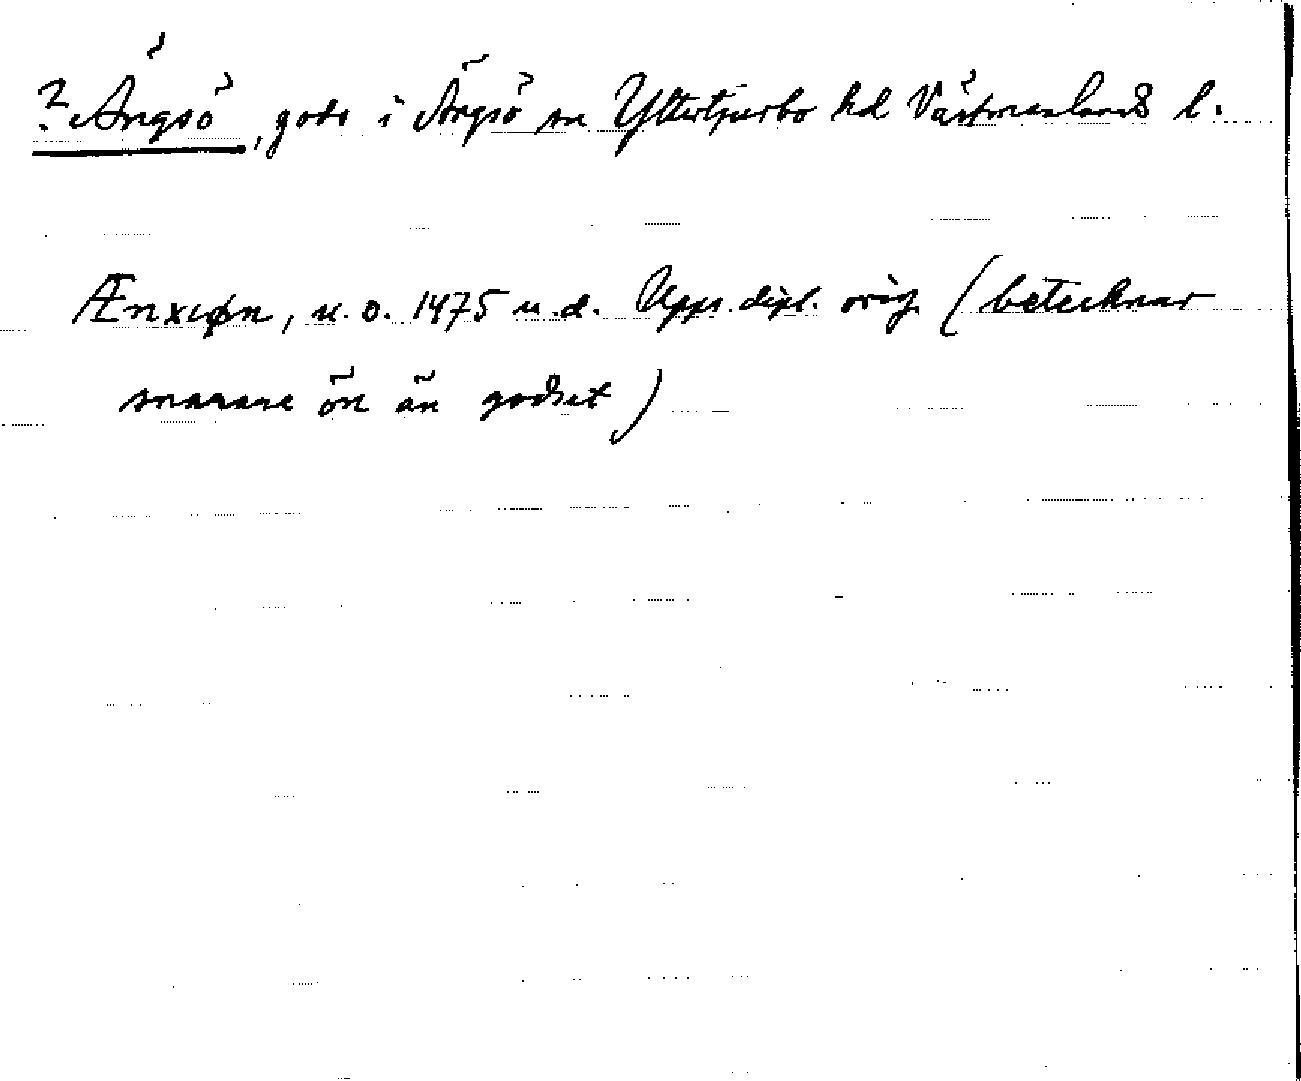 ? Ängsö, gods i Ängsö sn Yttertjurbo hd Västmanlands l.
Ænxιøn, u.o. 1475 u.d. Upps. dipl. orig. (betecknar
snarare ön än godset)